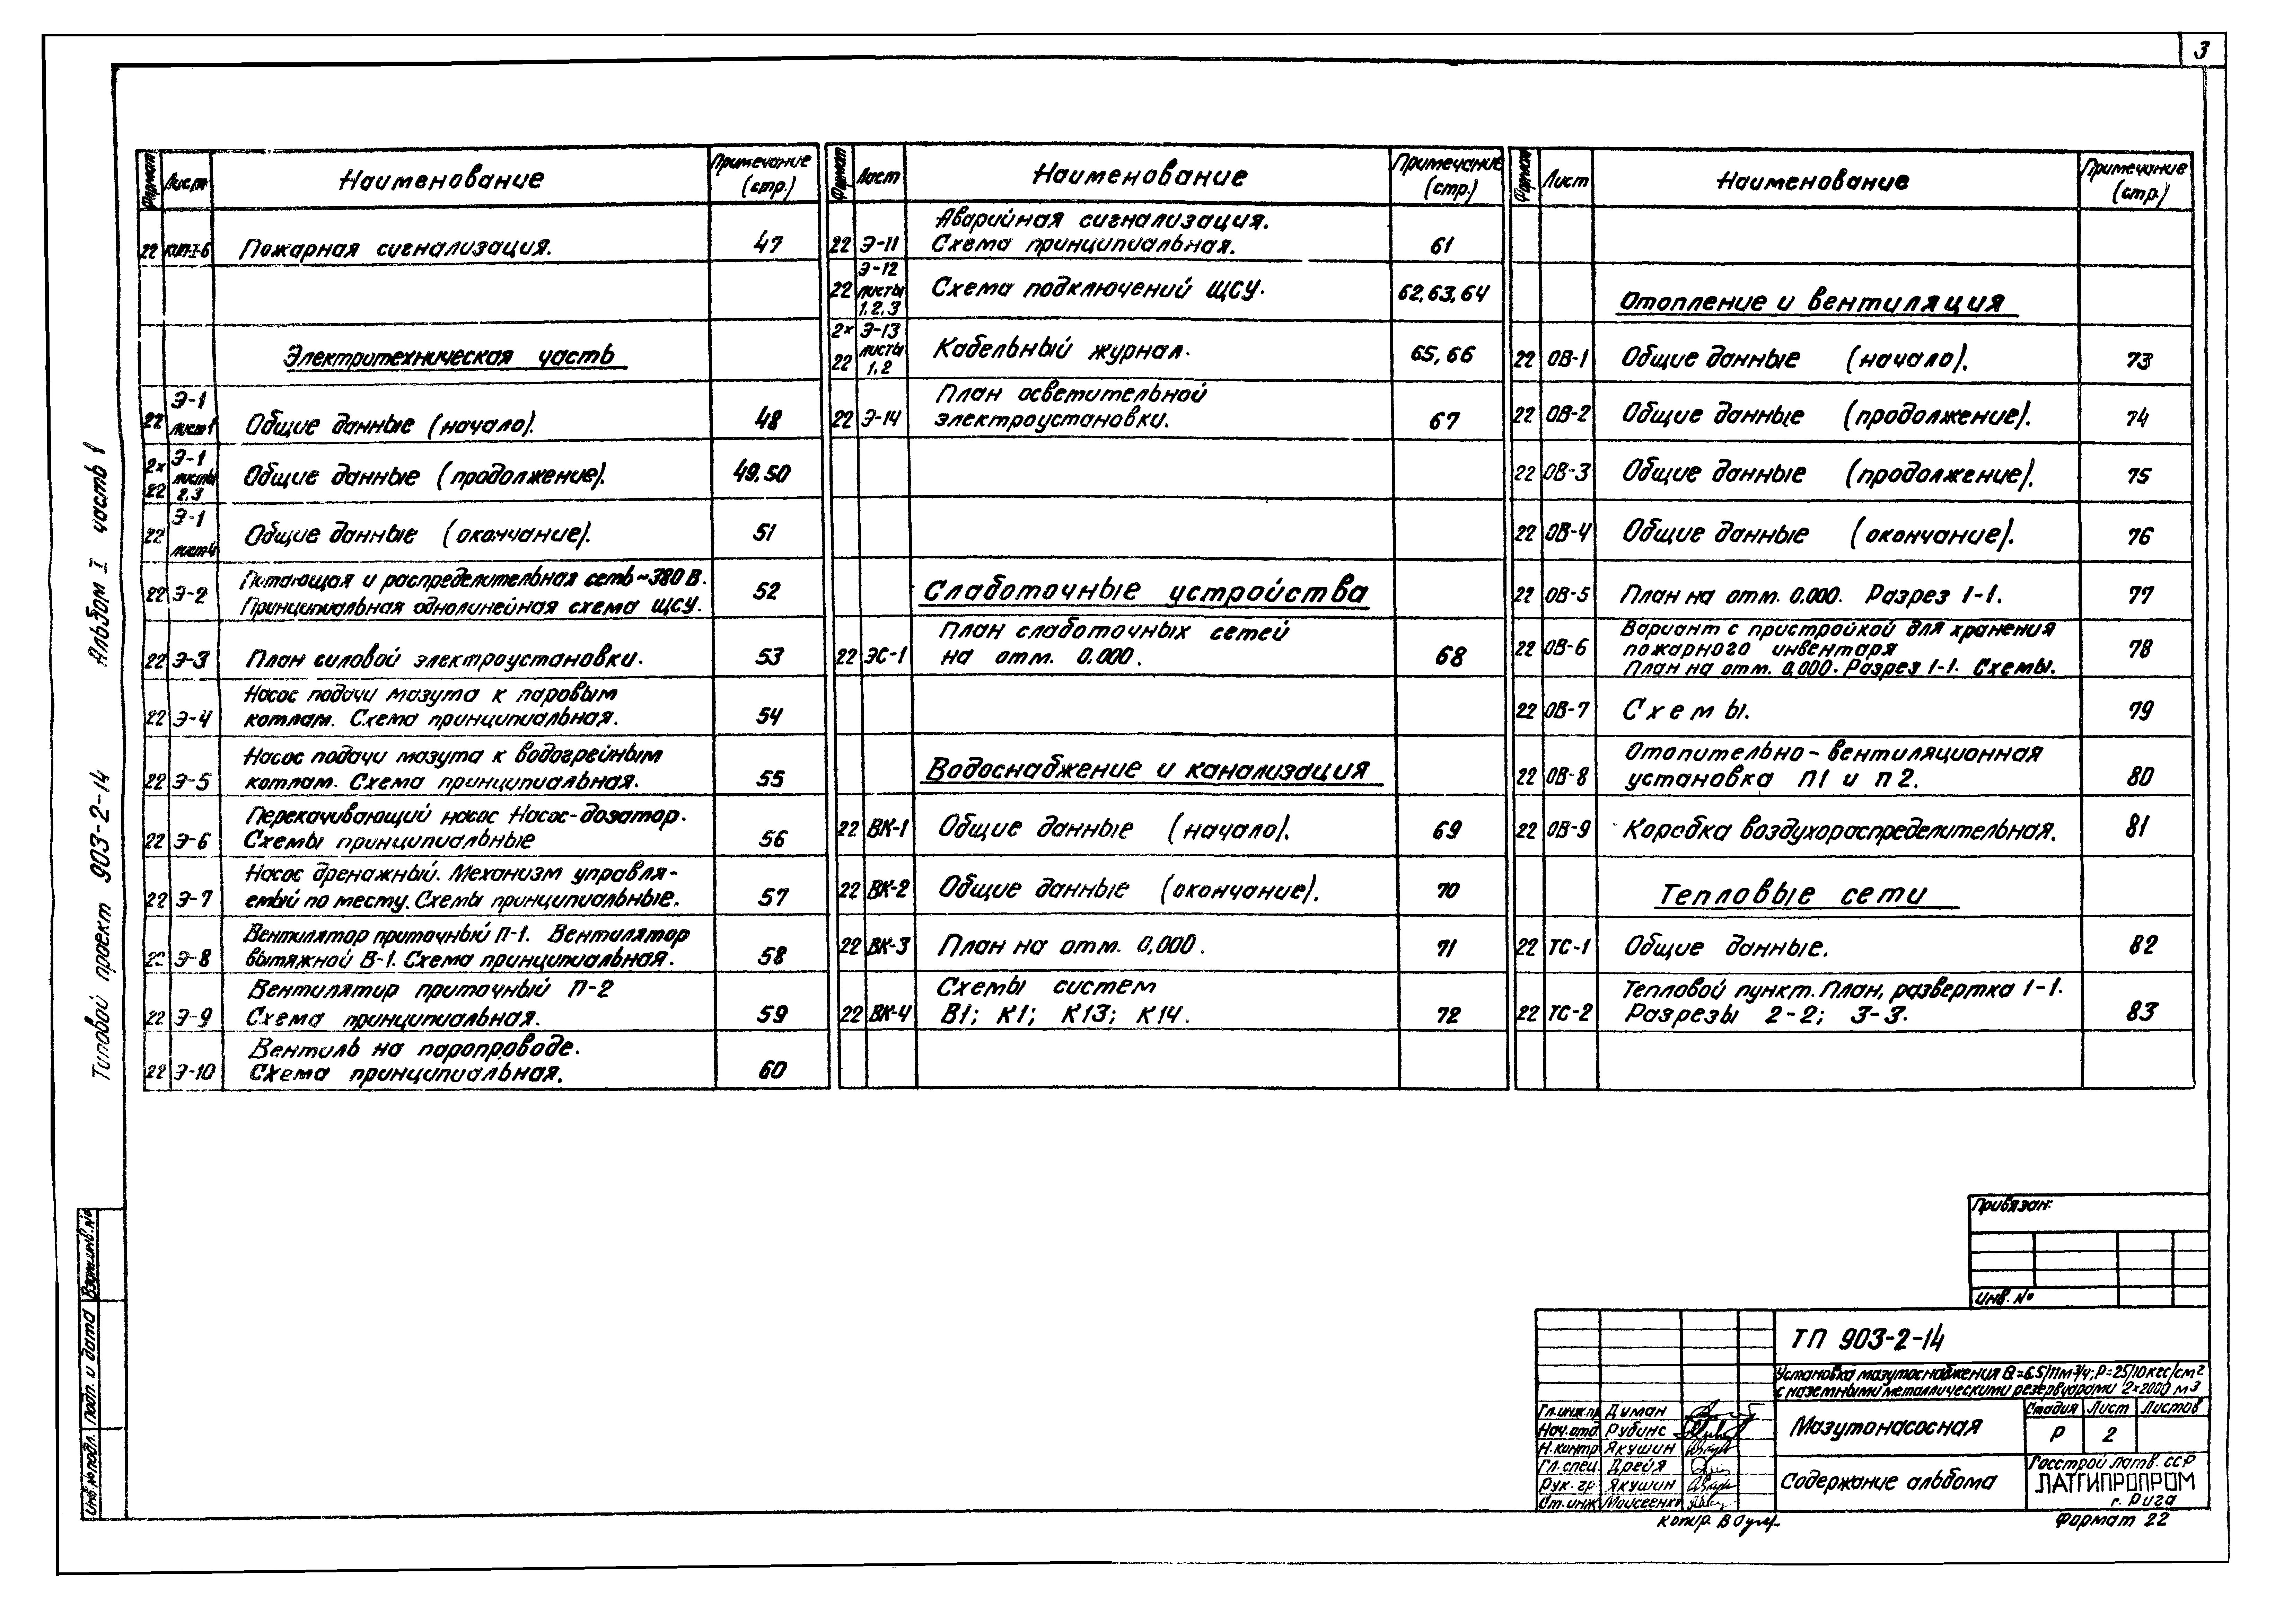 3
Формат Лист Наименование Примечание (стр.)
22 КИП-I-6 Пожарная сигнализация. 47
Электротехническая часть
22 Э-1 лист 1 Общие данные (начало). 48
2х22 Э-1 листы 2,3 Общие данные (продолжение). 49,50
22 Э-1 лист 4 Общие данные (окончание). 51
22 Э-2 Питающая и распределительная сеть ~380 В.
Принципиальная однолинейная схема ЩСУ. 52
22 Э-3 План силовой электроустановки. 53
Насос подачи мазута к паровым
22 Э-4 котлам. Схема принципиальная. 54
Насос подачи мазута к водогрейным
22 Э-5 котлам. Схема принципиальная. 55
Перекачивающий насос Насос-дозатор.
22 Э-6 Схемы принципиальные 56
Насос дренажный. Механизм управля-
22 Э-7 емый по месту. Схемы принципиальные. 57
Вентилятор приточный П-1. Вентилятор
22 Э-8 вытяжной В-1. Схема принципиальная. 58
Вентилятир приточный П-2
22 Э-9 Схема принципиальная. 59
Вентиль на паропроводе.
22 Э-10 Схема принципиальная. 60
Формат Лист Наименование Примечание (стр.)
Аварийная сигнализация.
22 Э-11 Схема принципиальная. 61
22 Э-12 листы 1,2,3 Схема подключений ЩСУ. 62,63,64
2х22 Э-13 листы 1,2 Кабельный журнал. 65,66
План осветительной
22 Э-14 электроустановки. 67
Слаботочные устройства
План слаботочных сетей
22 ЭС-1 на отм. 0.000. 68
Водоснабжение и канализация
22 ВК-1 Общие данные (начало). 69
22 ВК-2 Общие данные (окончание). 70
22 ВК-3 План на отм. 0,000. 71
Схемы систем
22 ВК-4 В1; К1; К13; К14. 72
Формат Лист Наименование Примечание (стр.)
Отопление и вентиляция
22 ОВ-1 Общие данные (начало). 73
22 ОВ-2 Общие данные (продолжение). 74
22 ОВ-3 Общие данные (продолжение). 75
22 ОВ-4 Общие данные (окончание). 76
22 ОВ-5 План на отм. 0.000. Разрез 1-1. 77
Вариант с пристройкой для хранения
22 ОВ-6 пожарного инвентаря 78
План на отм. 0,000. Разрез 1-1. Схемы.
22 ОВ-7 Схемы. 79
Отопительно-вентиляционная
22 ОВ-8 установка П1 и П2. 80
22 ОВ-9 Коробка воздухораспределительная. 81
Тепловые сети
22 ТС-1 Общие данные. 82
Тепловой пункт. План, развертка 1-1.
22 ТС-2 Разрезы 2-2; 3-3. 83
Типовой проект 903-2-14 Альбом I часть 1
Инв.№подл. Подп. и дата Взам.инв.№
Привязан:
Инв. №
ТП 903-2-14
Установка мазутоснабжения Q=6.5/11м³/ч; Р=25/10кгс/см²
с наземными металлическими резервуарами 2×2000 м3
Гл.инж.пр. Думан
Нач.отд. Рубинс
Н.контр. Якушин
Гл.спец. Дрейя
Рук.гр Якушин
Ст.инж. Моисеенко
Мазутонасосная
Стадия Лист Листов
Р 2
Содержание альбома
Госстрой Латв. ССР
ЛАТГИПРОПРОМ
г. Рига
копир.
Формат 22